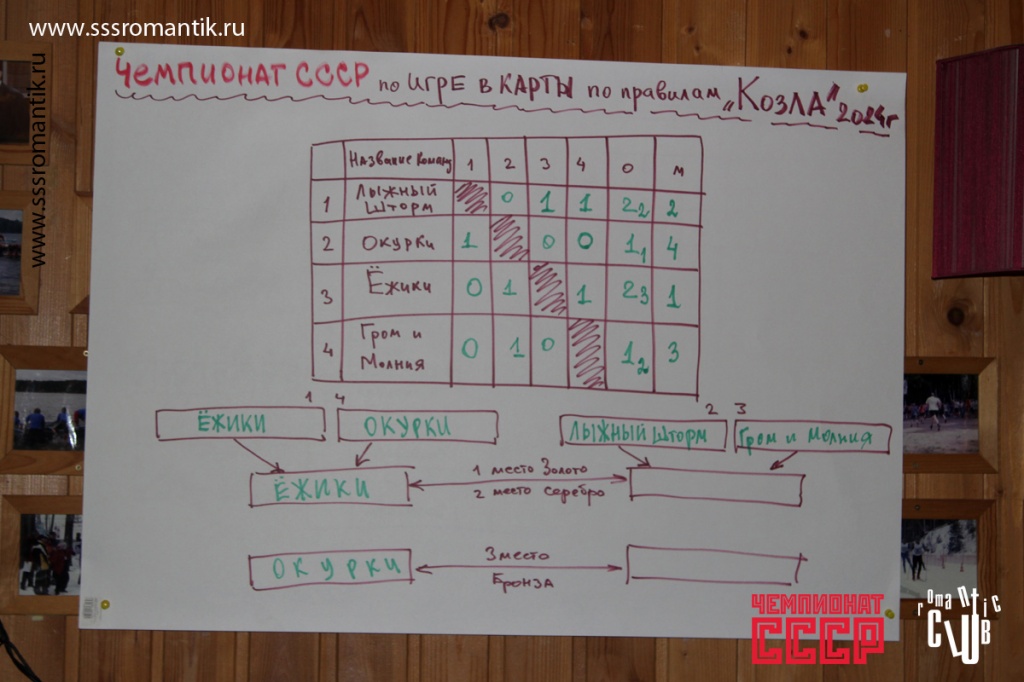 www.sssromantik.ru
www.sssromantik.ru
ЧЕМПИОНАТ СССР по ИГРЕ в КАРТЫ по правилам „КОЗЛА" 2014г
Название Команд 1 2 3 4 О М
1 ЛЫЖНЫЙ ШТОРМ 0 1 1 2 2 2
2 ОКУРКИ 1 0 0 1 1 4
3 ЁЖИКИ 0 1 1 2 3 1
4 Гром и Молния 0 1 0 1 2 3
1 4 2 3
ЁЖИКИ ОКУРКИ ЛЫЖНЫЙ ШТОРМ Гром и Молния
1 место Золото
ЁЖИКИ
2 место серебро
3 место
ОКУРКИ
Бронза
ЧЕМПИОНАТ
СССР
romantic
CLUB